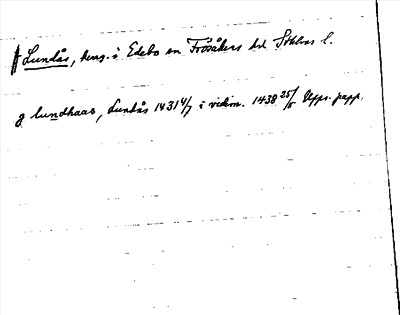 Lundås, hmg. i Edebo sn Frösåkers hd Sthlms l.
g lundhaas, Lundås 1431 4/7 i vidim. 1438 25/5 Upps. papp.